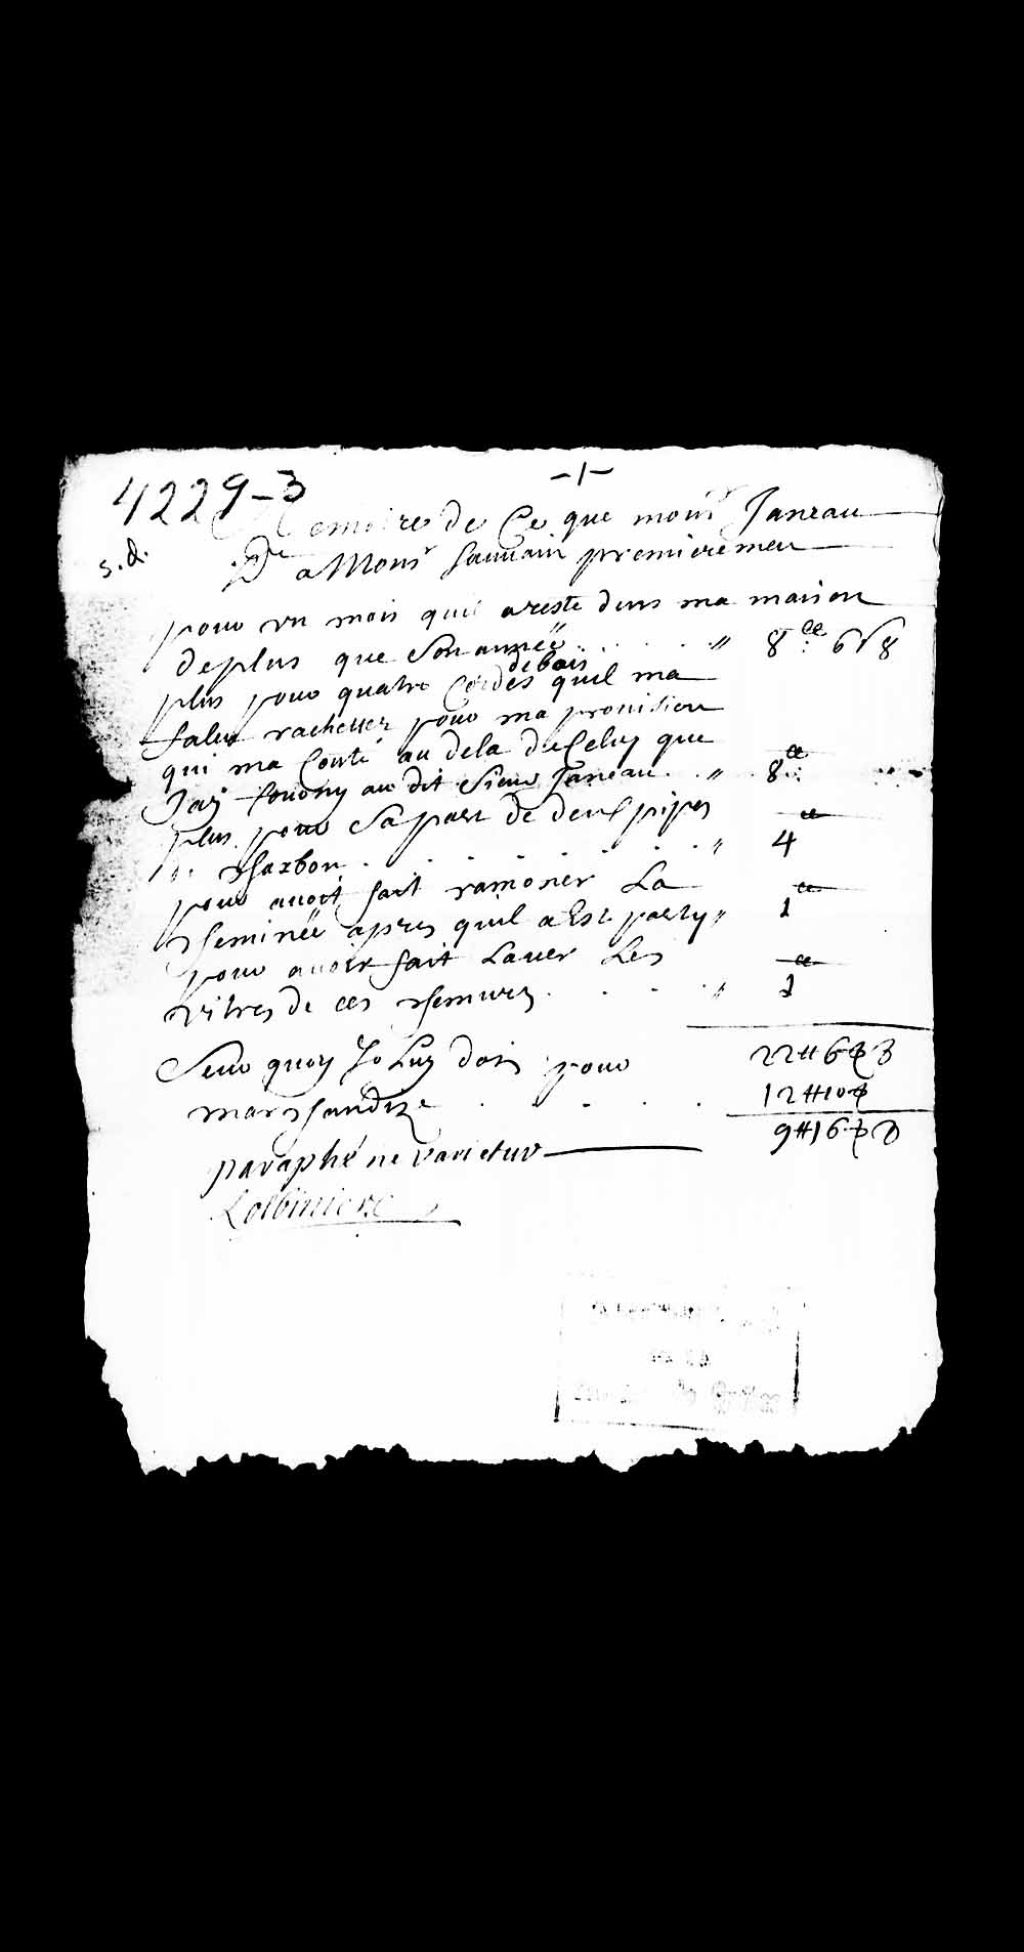 -1-
4229-3
Memoire de Ce que monsr Janeau
s.d.
Dt a Monsr Sauuain premieremen
pour vn mois quil areste dens ma maison
deplus que Son année . . . . . " 8ll 6s 8
debois
plus pour quatre Cordes quil ma
falut rachetter pour ma prouision
qui ma Couté au dela de Celuy que
Jay fourny au dit Sieur Janeau . . " 8ll
plus pour Sa part de deux pipes
de sharbon . . . . . . . " 4ll
pour auoir fait ramoner La
sheminée apres quil a Est party " 1ll
pour auoir fait Lauer Les
vitres de ces shemures . . . . " 1ll
Seur quoy Je Luy dois pour 22ll 6s 8
marshandize . . . . 12ll 10s
9ll 16s 8
paraphé ne varietur
Lotbiniere